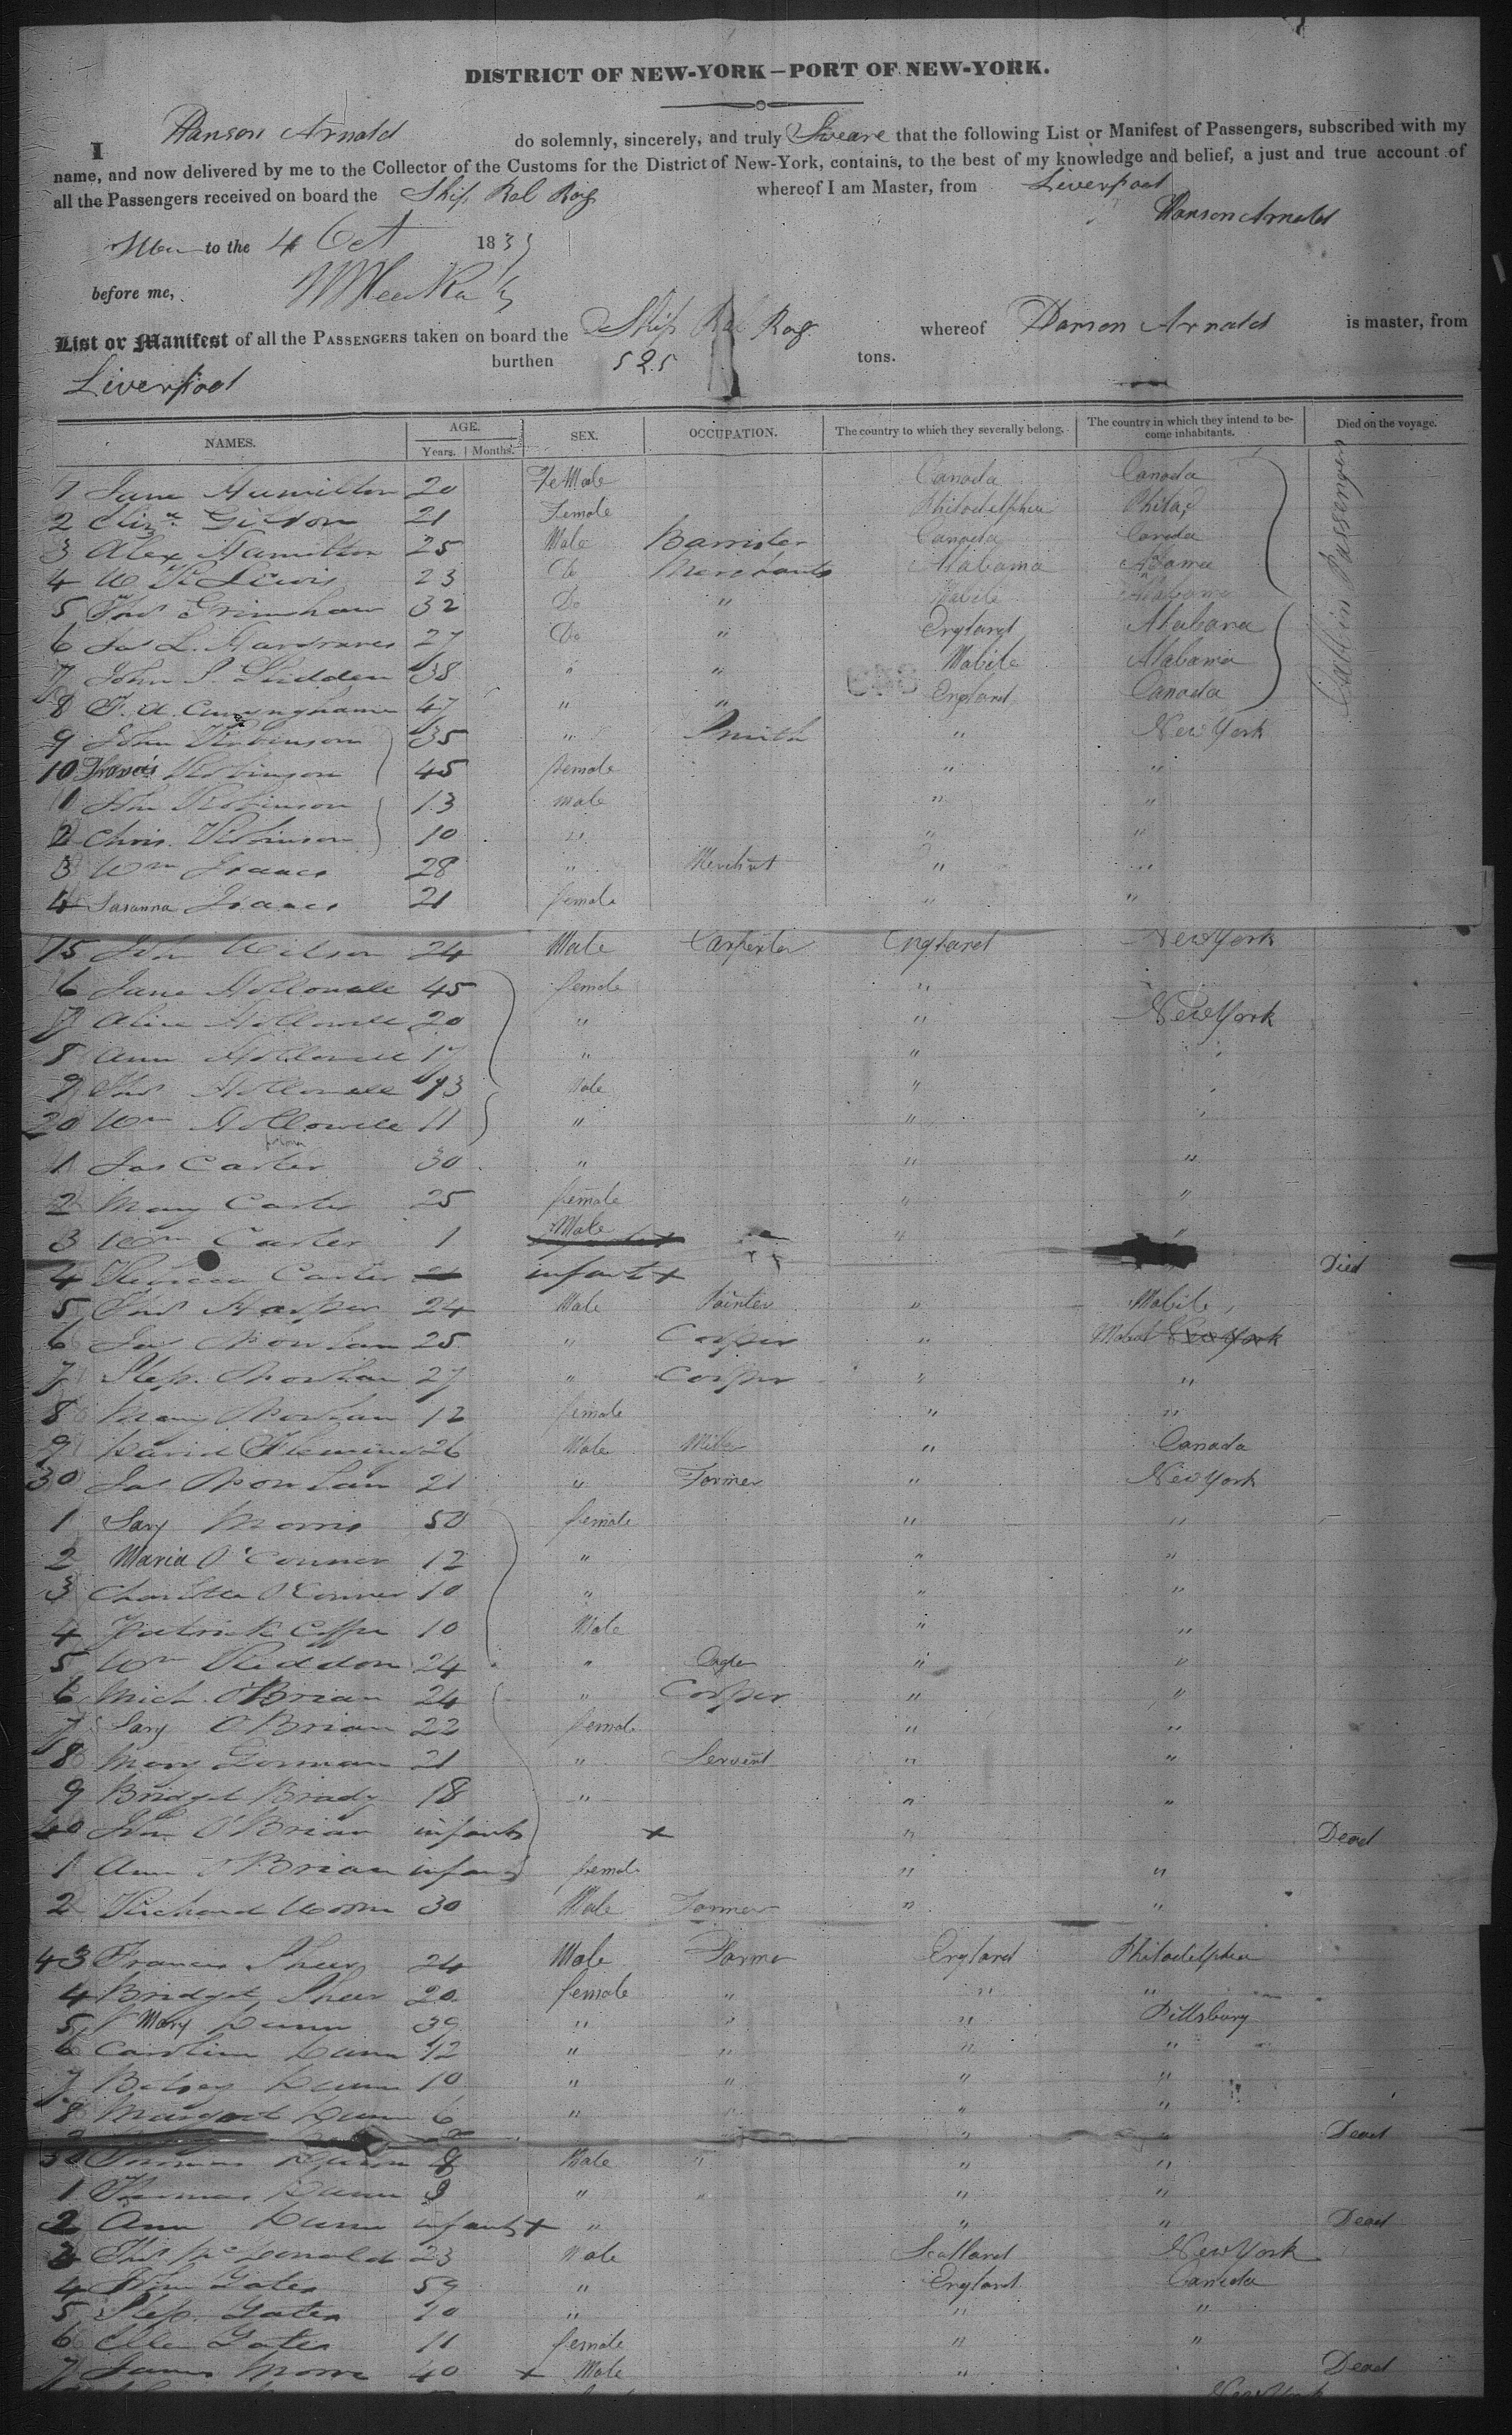 DISTRICT OF NEW-YORK—PORT OF NEW-YORK.
I Hanson Arnold do solemnly, sincerely, and truly Sweare that the following List or Manifest of Passengers, subscribed with my
name, and now delivered by me to the Collector of the Customs for the District of New-York, contains, to the best of my knowledge and belief, a just and true account of
all the Passengers received on board the Ship Rob Roy whereof I am Master, from Liverpool
Hanson Arnold
to the 4 Oct 183
before me,
List or Manifest of all the PASSENGERS taken on board the Ship Rob Roy whereof Hanson Arnold is master, from
burthen 525 tons.
Liverpool
NAMES. AGE. SEX. OCCUPATION. The country to which they severally belong. The country in which they intend to be- Died on the voyage.
Years. Months. come inhabitants.
Cabbin Passengers
1 Jane Hamilton 20 FeMale Canada Canada
2 Eliza Gibson 21 Female Philadelphia Philad
3 Alex Hamilton 25 Male Barrister Canada Canada
4 Lewis 23 Do Merchants Alabama
5 Thos Grimshaw 32 Do " Mobile
6 Jas L. Hargraves 27 Do " England Alabama
7 John " " Mobile Alabama
8 F. A. Cunninghame 47 " " England Canada
9 John Robinson 35 " Smith " New York
10 Francis Robinson 45 female " "
1 John Robinson 13 male " "
2 Chris. Robinson 10 " " "
3 Wm Isaacs 28 " Merchant " "
4 Susanna Isaacs 21 female " "
15 John Wilson 24 Male Carpenter England New York
6 Jane Hollowell 45 female "
7 Alice Hollowell 20 " " New York
8 Ann Hollowell 17 " "
9 Thos Hollowell 13 Male "
20 Wm Hollowell 11 " "
1 Jas Carter 30 " " "
2 Mary Carter 25 female " "
3 Wm Carter 1 Male "
4 Carter infant + Died
5 Thos Harper 24 Male Painter " Mobile
6 Jas 25 " Cooper " New York
7 Step. 27 " Cooper " "
8 Mary 12 female " "
9 David Fleming 26 Male " Canada
30 Jas 21 " Farmer " New York
1 Sary Morris 50 female " "
2 Maria O'Conner 12 " " "
3 Charlotte O'Conner 10 " " "
4 Patrick 10 Male " "
5 Wm 24 " " "
6 Mich. O'Brian 24 " Cooper " "
7 Sary O'Brian 22 female " "
8 Mary Gorman 21 " Servent " "
9 Bridget Brady 18 " " "
40 John O'Brian infant + " Dead
1 Ann O'Brian infant female " "
2 Richard 30 Male Farmer " "
43 Francis 24 Male Farmer England Philadelphia
4 Bridget 20 female " " "
5 Mary Dunn 39 " " " Pittsburg
6 Caroline Dunn 12 " " " "
7 Betsey Dunn 10 " " " "
8 Margaret Dunn 6 " " "
" " Dead
50 Dunn Male " " "
1 Thomas Dunn " " " "
2 Ann Dunn infant + " " " Dead
3 Thos McDonald 23 Male Scotland New York
4 John Gates 59 " England Canada
5 Step. Gates " " "
6 Ellen Gates 11 female " "
7 James 40 + Male " Dead
New York